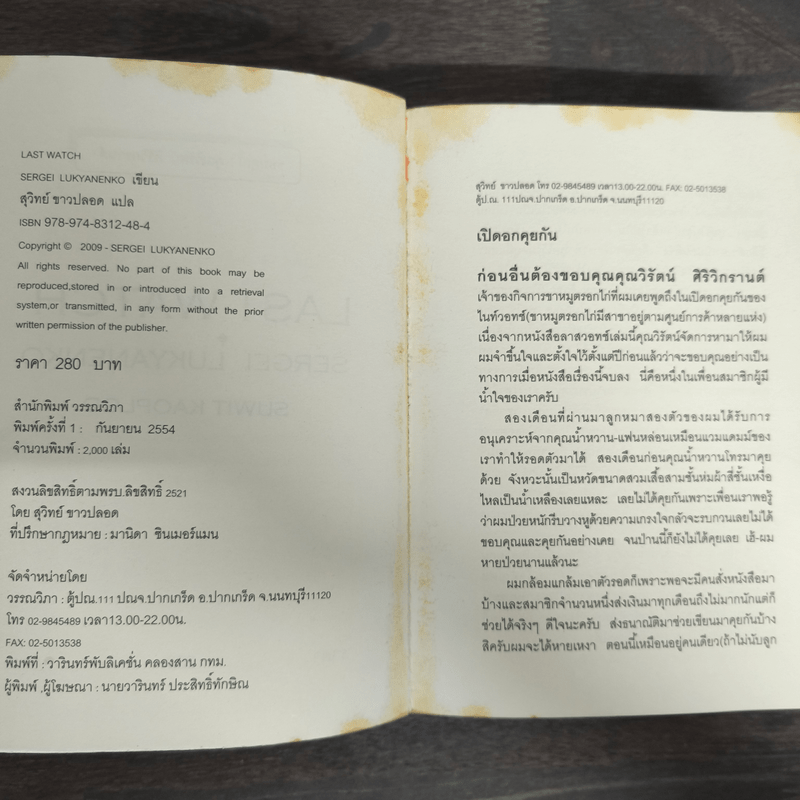 LAST WATCH
SERGEI LUKYANENKO เขียน
สุวิทย์ ขาวปลอด แปล
ISBN 978-974-8312-48-4
Copyright © 2009 - SERGEI LUKYANENKO
All rights reserved. No part of this book may be
reproduced,stored in or introduced into a retrieval
system,or transmitted, in any form without the prior
written permission of the publisher.
ราคา 280 บาท
สำนักพิมพ์ วรรณวิภา
พิมพ์ครั้งที่ 1 : กันยายน 2554
จำนวนพิมพ์ : 2,000 เล่ม
สงวนลิขสิทธิ์ตามพรบ.ลิขสิทธิ์ 2521
โดย สุวิทย์ ขาวปลอด
ที่ปรึกษากฎหมาย : มานิดา ซินเมอร์แมน
จัดจำหน่ายโดย
วรรณวิภา : ตู้ปณ.111 ปณจ.ปากเกร็ด อ.ปากเกร็ด จ.นนทบุรี11120
โทร 02-9845489 เวลา13.00-22.00น.
FAX: 02-5013538
พิมพ์ที่ : วารินทร์พับลิเคชั่น คลองสาน กทม.
ผู้พิมพ์ ,ผู้โฆษณา : นายวารินทร์ ประสิทธิ์ทักษิณ
สุวิทย์ ขาวปลอด โทร 02-9845489 เวลา13.00-22.00น. FAX: 02-5013538
ตู้ป.ณ. 111ปณจ.ปากเกร็ด อ.ปากเกร็ด จ.นนทบุรี11120
เปิดอกคุยกัน
ก่อนอื่นต้องขอบคุณคุณวิรัตน์ ศิริวิกรานต์
เจ้าของกิจการขาหมูตรอกไก่ที่ผมเคยพูดถึงในเปิดอกคุยกันของ
ไนท์วอทช์(ขาหมูตรอกไก่มีสาขาอยู่ตามศูนย์การค้าหลายแห่ง)
เนื่องจากหนังสือลาสวอทช์เล่มนี้คุณวิรัตน์จัดการหามาให้ผม
ผมจำขึ้นใจและตั้งใจไว้ตั้งแต่ปีก่อนแล้วว่าจะขอบคุณอย่างเป็น
ทางการเมื่อหนังสือเรื่องนี้จบลง นี่คือหนึ่งในเพื่อนสมาชิกผู้มี
น้ำใจของเราครับ
สองเดือนที่ผ่านมาลูกหมาสองตัวของผมได้รับการ
อนุเคราะห์จากคุณน้ำหวาน-แฟนหล่อนเหมือนแวมแดมม์ของ
เราทำให้รอดตัวมาได้ สองเดือนก่อนคุณน้ำหวานโทรมาคุย
ด้วย จังหวะนั้นเป็นหวัดขนาดสวมเสื้อสามชั้นห่มผ้าสี่ชั้นเหงื่อ
ไหลเป็นน้ำเหลืองเลยแหละ เลยไม่ได้คุยกันเพราะเพื่อนเราพอรู้
ว่าผมป่วยหนักรีบวางหูด้วยความเกรงใจกลัวจะรบกวนเลยไม่ได้
ขอบคุณและคุยกันอย่างเคย จนป่านนี้ก็ยังไม่ได้คุยเลย เฮ้-ผม
หายป่วยนานแล้วนะ
ผมกล้อมแกล้มเอาตัวรอดก็เพราะพอจะมีคนสั่งหนังสือมา
บ้างและสมาชิกจำนวนหนึ่งส่งเงินมาทุกเดือนถึงไม่มากนักแต่ก็
ช่วยได้จริงๆ ดีใจนะครับ ส่งธนาณัติมาช่วยเขียนมาคุยกันบ้าง
สิครับผมจะได้หายเหงา ตอนนี้เหมือนอยู่คนเดียว(ถ้าไม่นับลูก